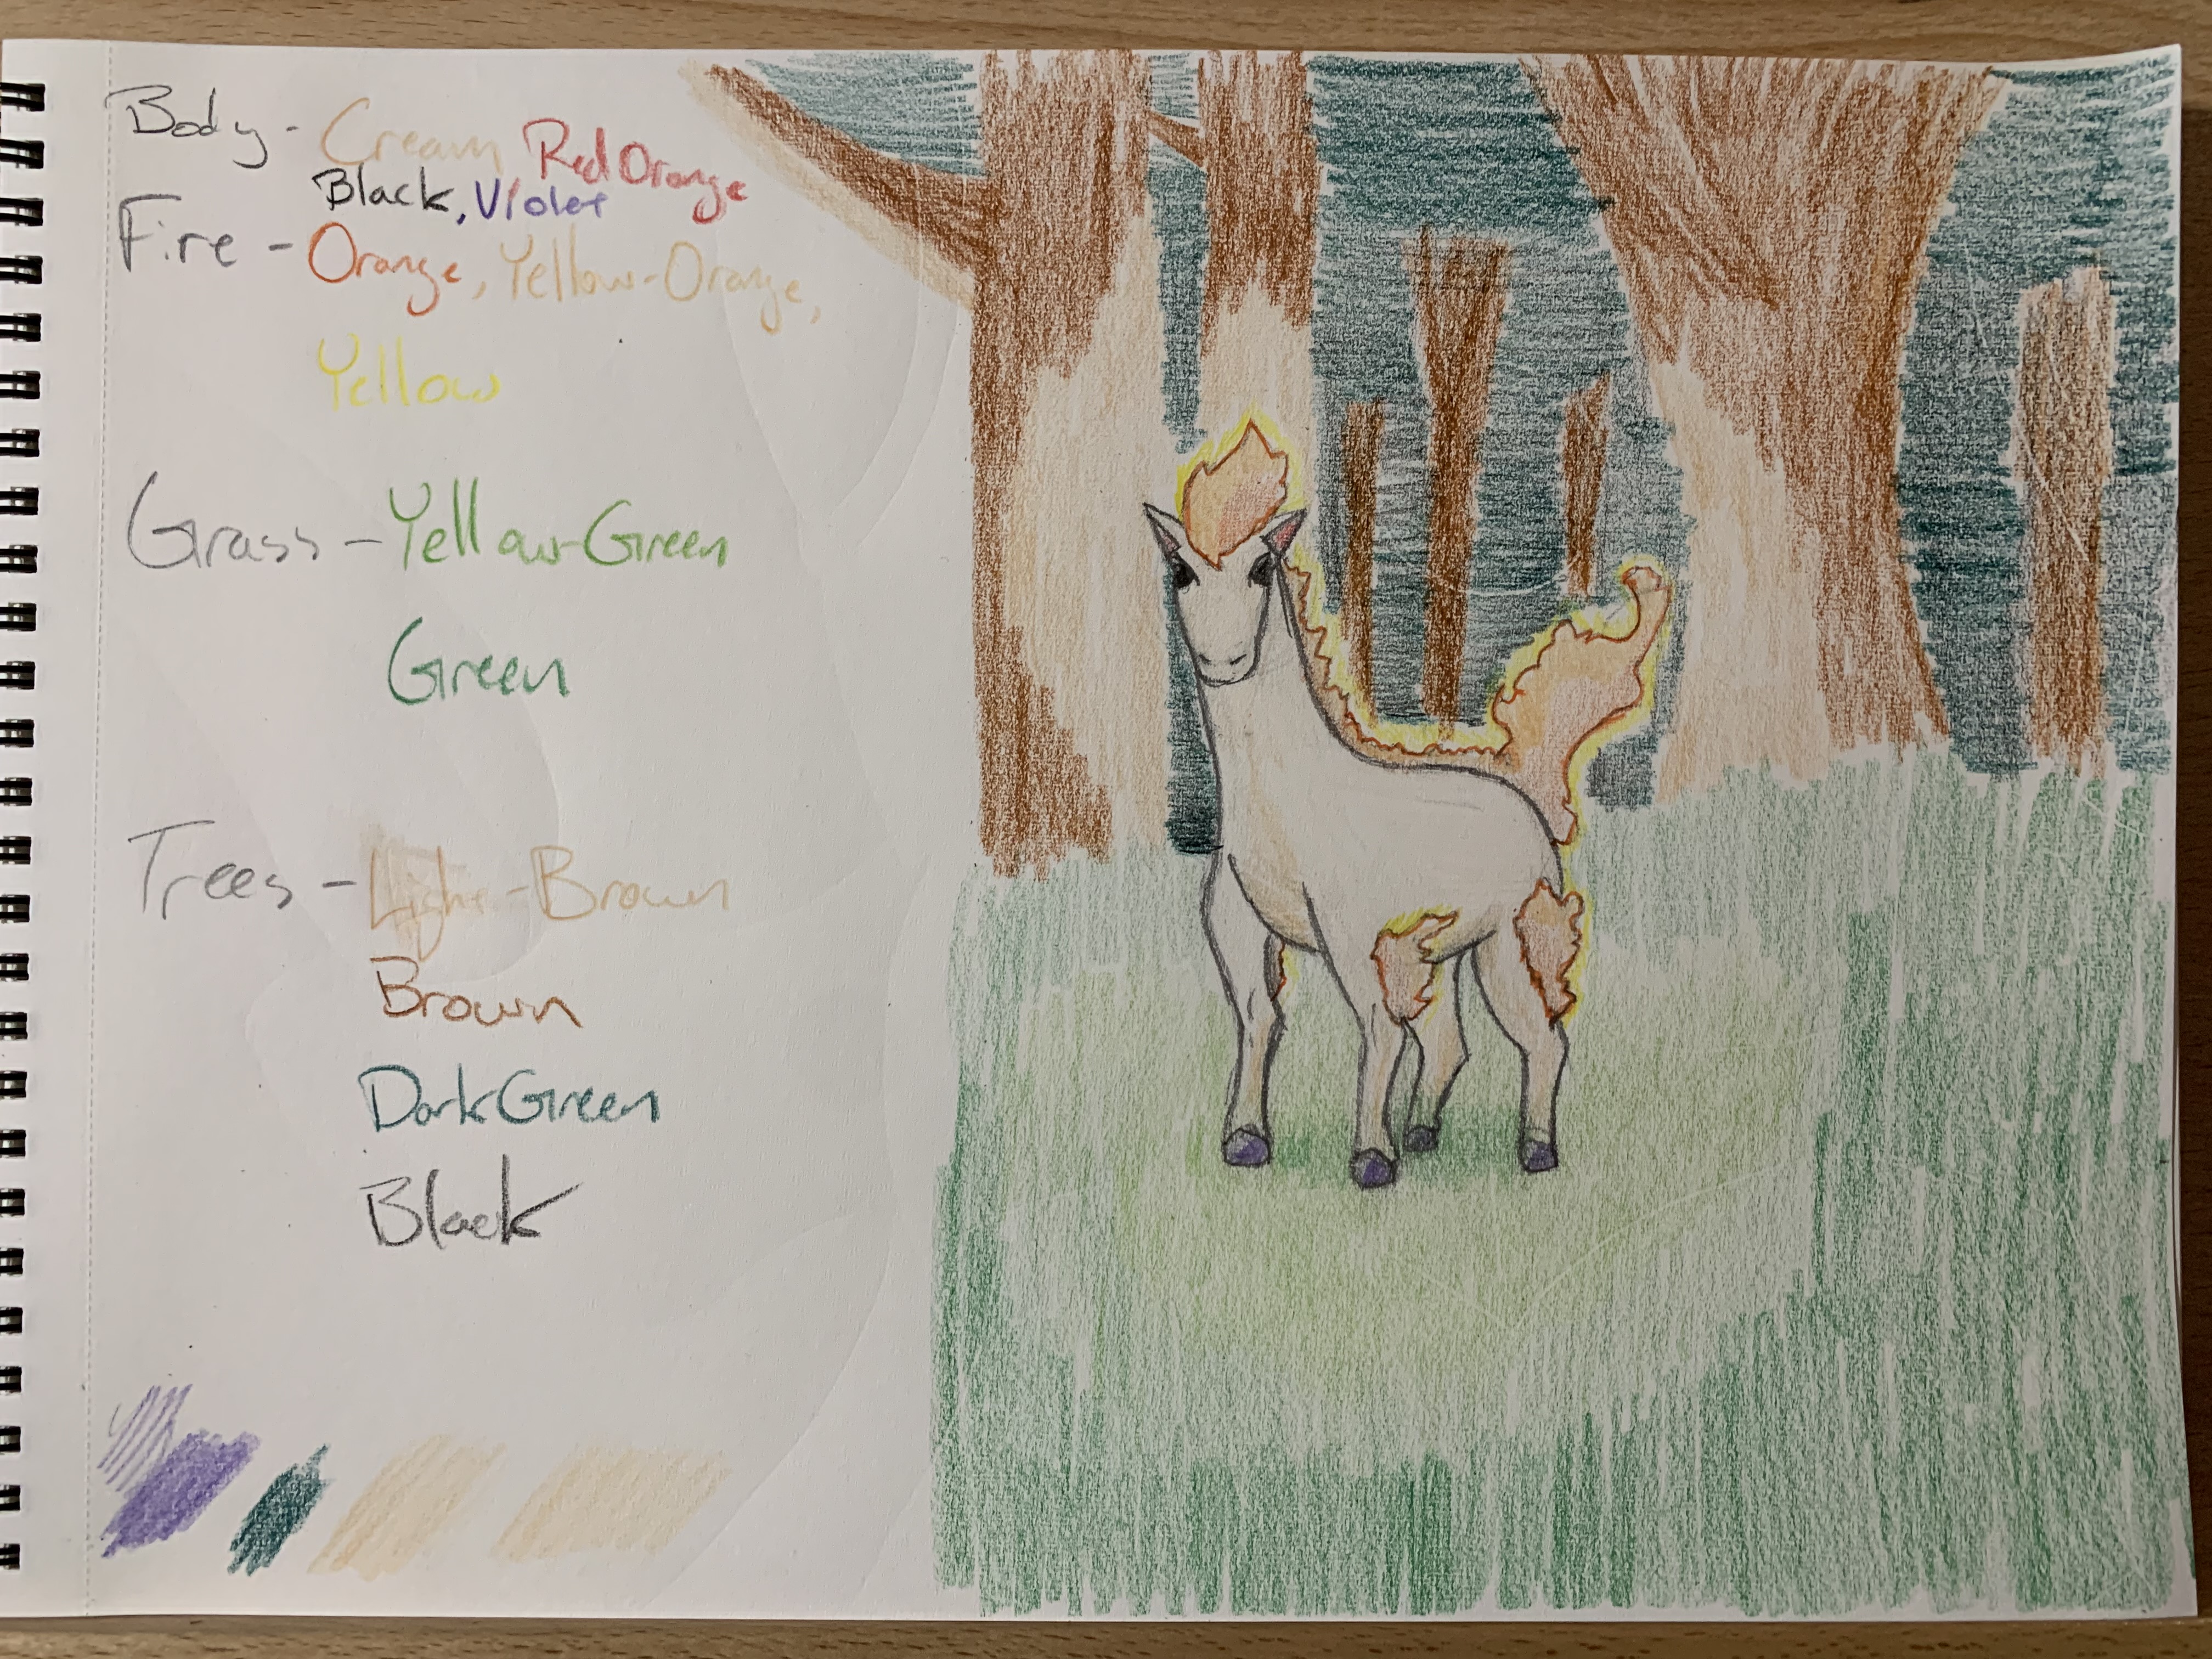 Body - Cream, Red Orange
Black, Violet
Fire - Orange, Yellow-Orange,
Yellow
Grass - Yellow-Green
Green
Trees - Light-Brown
Brown
Dark Green
Black